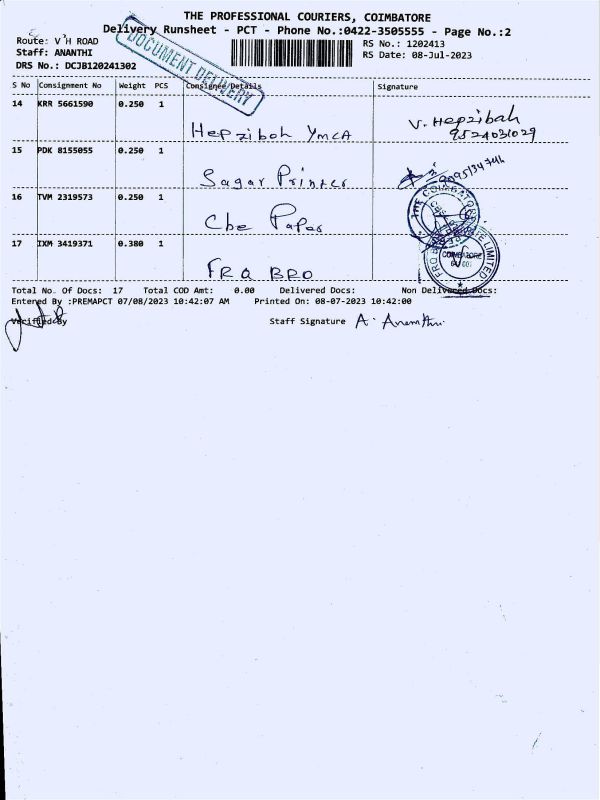 THE PROFESSIONAL COURIERS, COIMBATORE
Delivery Runsheet - PCT - Phone No.:0422-3505555 - Page No.:2
Route: V H ROAD
RS No.: 1202413
Staff: ANANTHI
RS Date: 08-Jul-2023
DRS No.: DCJB120241302
DOCUMENT DELIVERY
S No Consignment No Weight PCS Consignee/Details Signature
14 KRR 5661590 0.250 1 Hepziboh YMCA V. Hepzibah
9524031029
15 PDK 8155055 0.250 1 Sagar Printer
16 TVM 2319573 0.250 1 Cbe Paper
THE COIMBATOR
17 IXM 3419371 0.380 1 FRO BRO
LIMITED
COIMBATORE
Total No. Of Docs: 17 Total COD Amt: 0.00 Delivered Docs: Non Delivered Docs:
Entered By :PREMAPCT 07/08/2023 10:42:07 AM Printed On: 08-07-2023 10:42:00
Verified By Staff Signature A. Ananthi